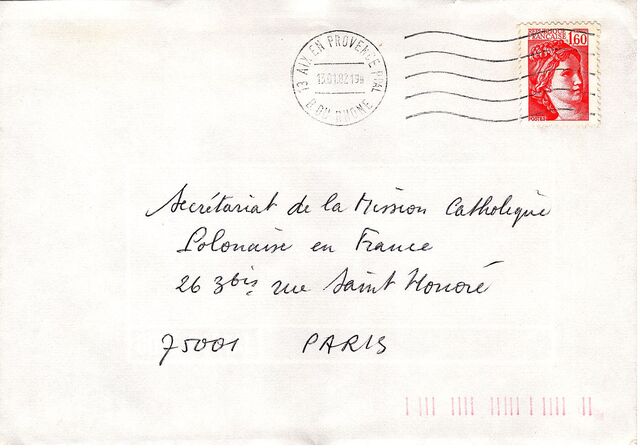 13 AIX EN PROVENCE PPAL
13.01.82 19H
B. DU RHONE
REPUBLIQUE
FRANCAISE 1,60
POSTES
Secrétariat de la Mission Catholique
Polonaise en France
26 3bis rue Saint Honoré
75001 PARIS